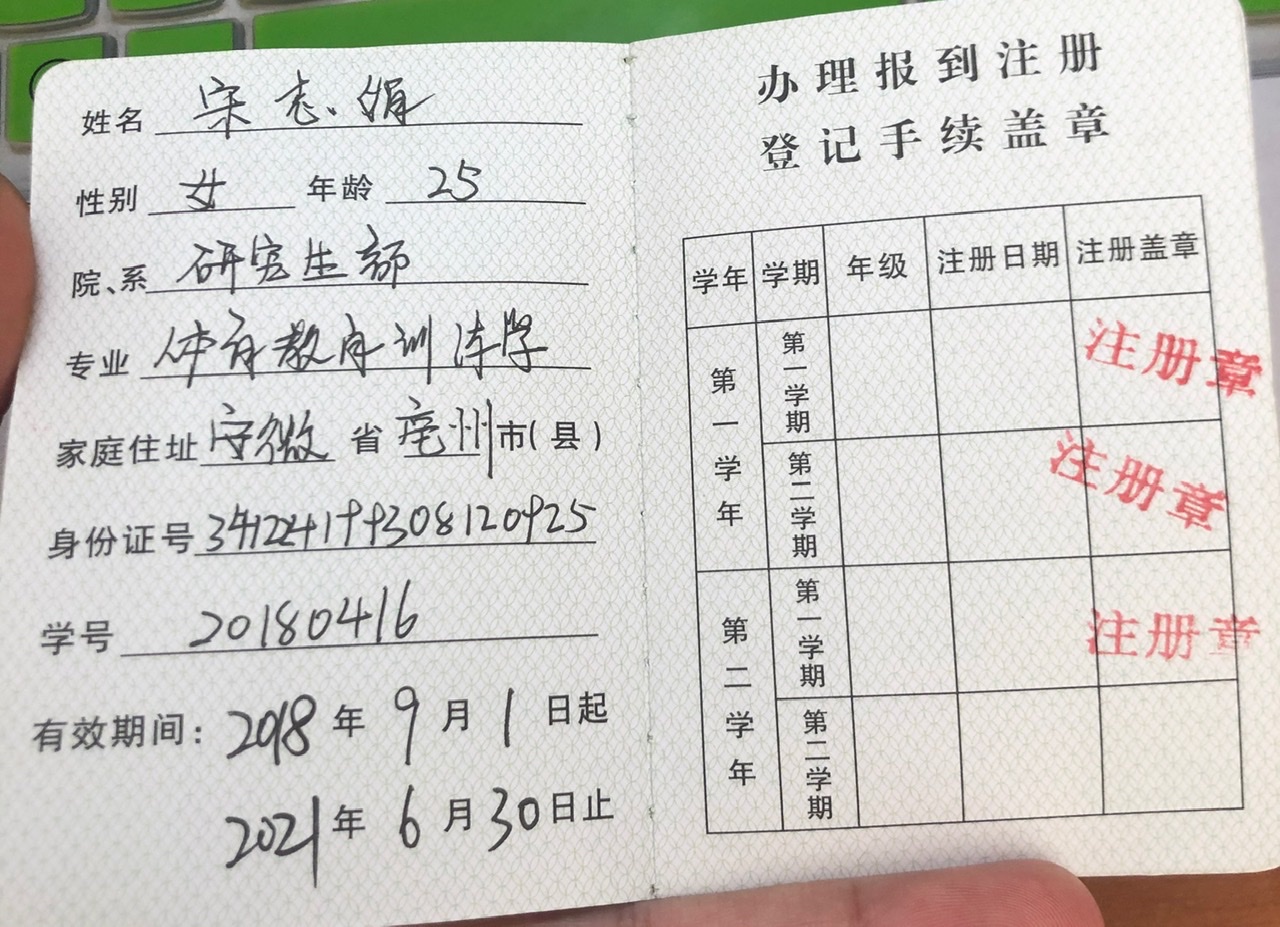 姓名 宋志娟
性别 女 年龄 25
院、系 研究生部
专业 体育教育训练学
家庭住址 安微 省 亳州 市(县)
身份证号 341224199308120925
学号 20180416
有效期间: 2018 年 9 月 1 日起
2021 年 6 月 30 日止
办理报到注册
登记手续盖章
学年 学期 年级 注册日期 注册盖章
第一学年 第一学期 注册章
第二学期 注册章
第二学年 第一学期 注册章
第二学期